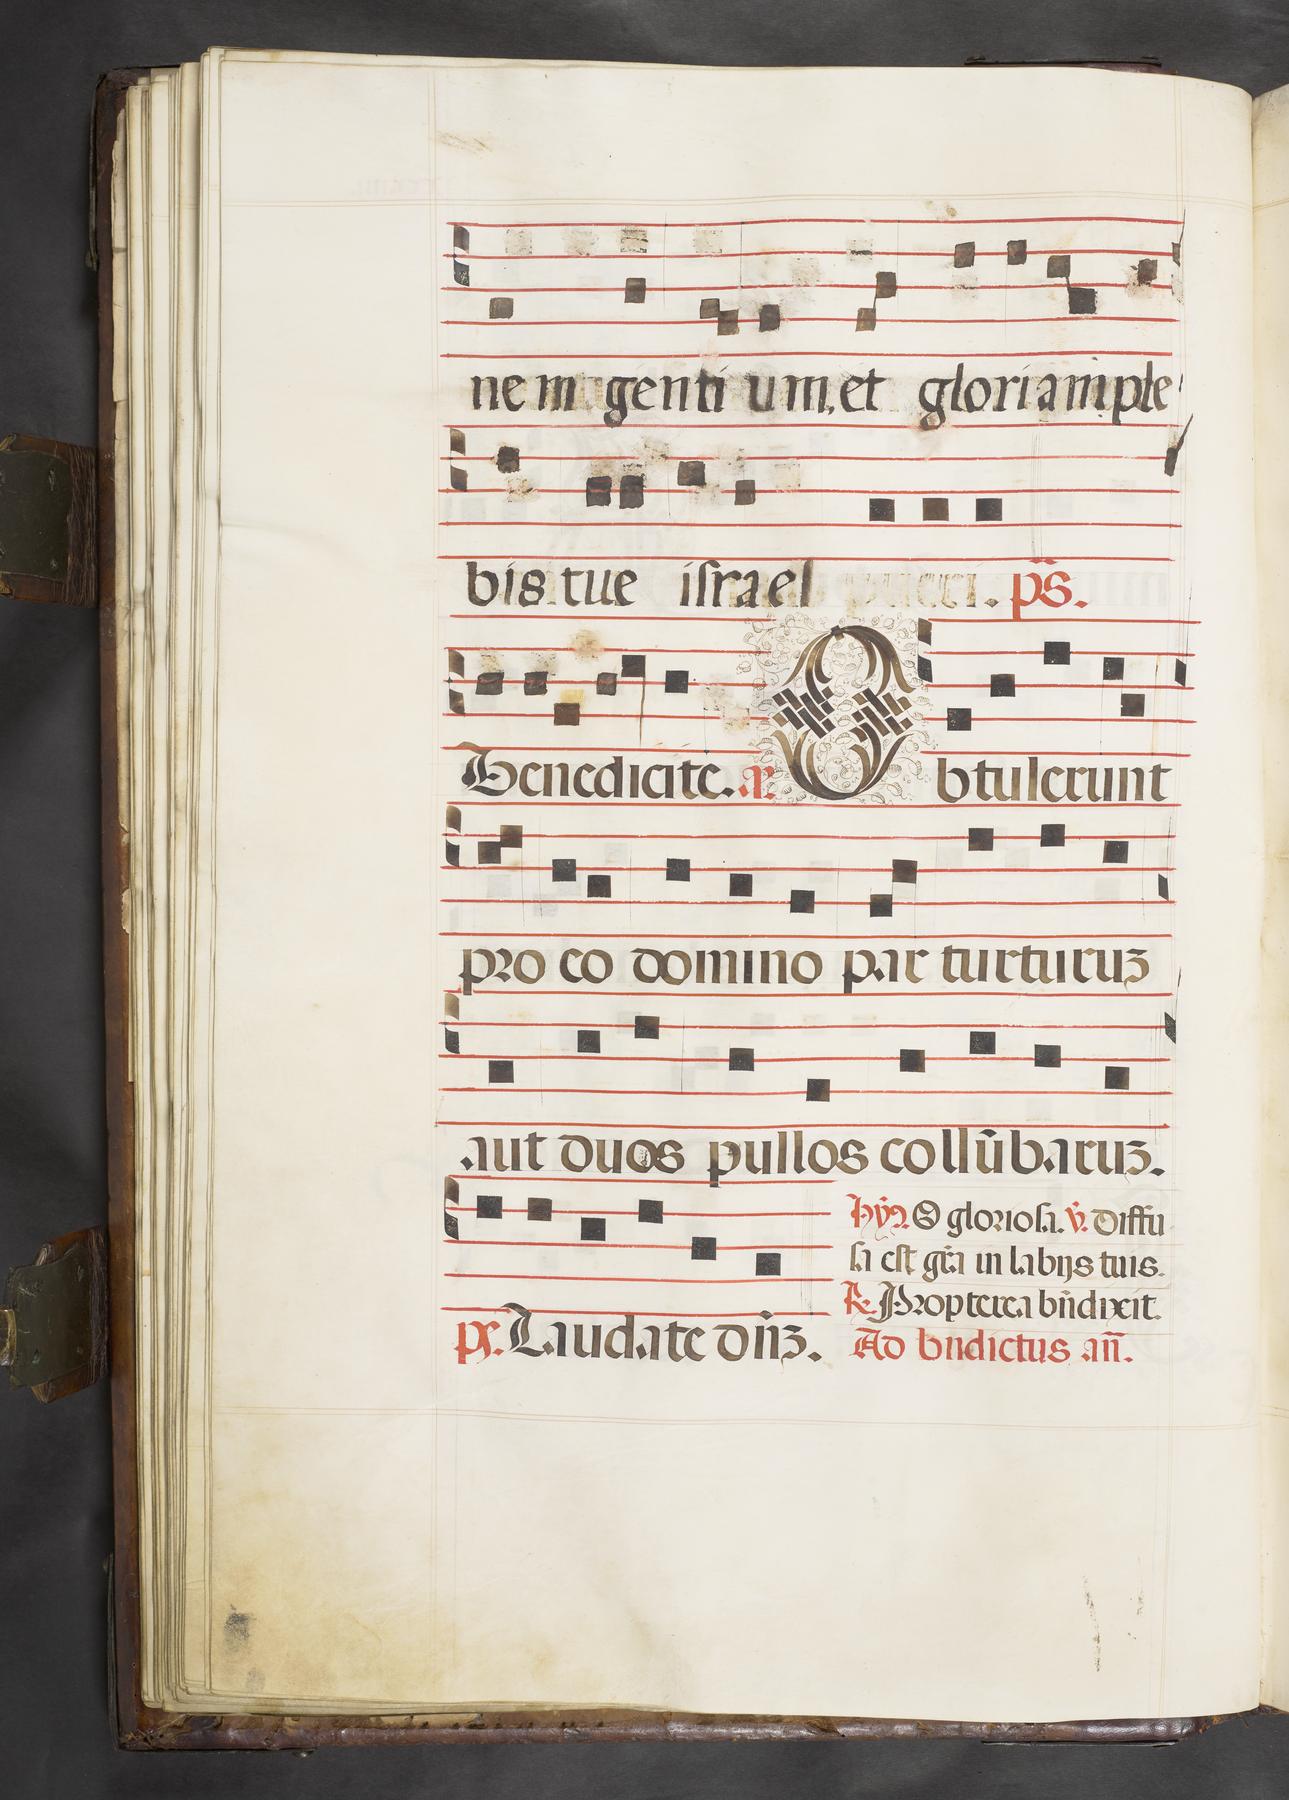 nem genti um, et gloriam ple
bis tue israel p̄s.
Benedicite. a. O btulerunt
pro eo domino par turturuz
aut duos pullos collūbaruz.
ps. Laudate dn̄z.
Hȳ. O gloriosa. v̄. Diffu
sa est gr̄a in labijs tuis.
R. Propterea bn̄dixit.
Ad bndictus an̄.